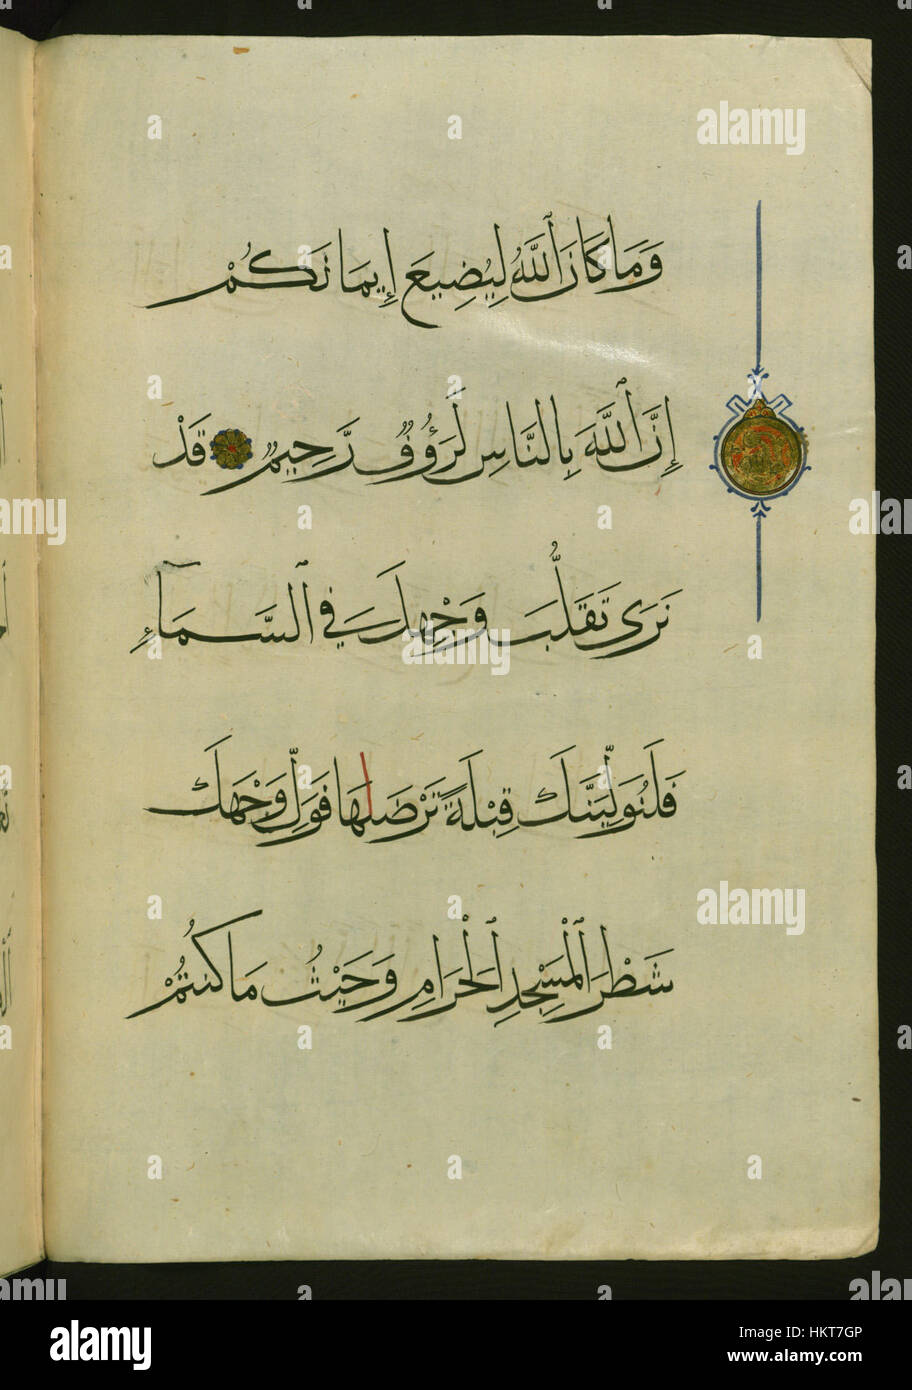 وَمَا كَانَ ٱللَّهُ لِيُضِيعَ إِيمَانَكُمْ
إِنَّ ٱللَّهَ بِالنَّاسِ لَرَؤُوفٌ رَّحِيمٌ قَدْ
نَرَى تَقَلُّبَ وَجْهِكَ فِي ٱلسَّمَآءِ
فَلَنُوَلِّيَنَّكَ قِبْلَةً تَرْضَىٰهَا فَوَلِّ وَجْهَكَ
شَطْرَ ٱلْمَسْجِدِ ٱلْحَرَامِ وَحَيْثُ مَا كُنتُمْ
alamy
alamy
alamy
a alamy
Image ID: HKT7GP
www.alamy.com